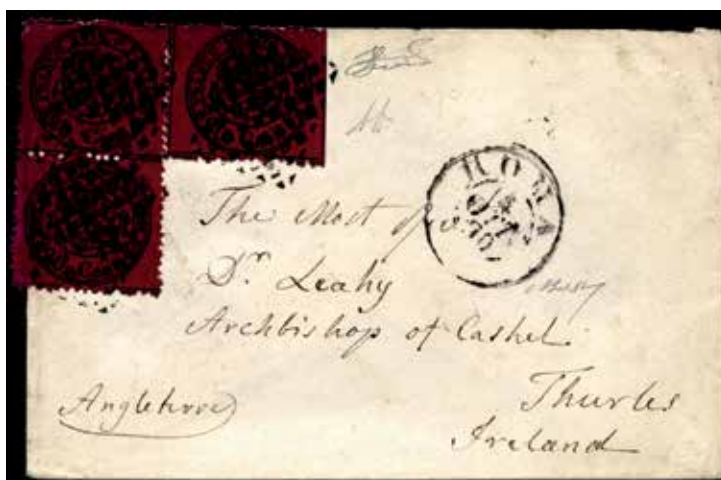 ROMA
70
The Most
Dr Leahy
Archbishop of Cashel
Thurles
Ireland
Angleterre